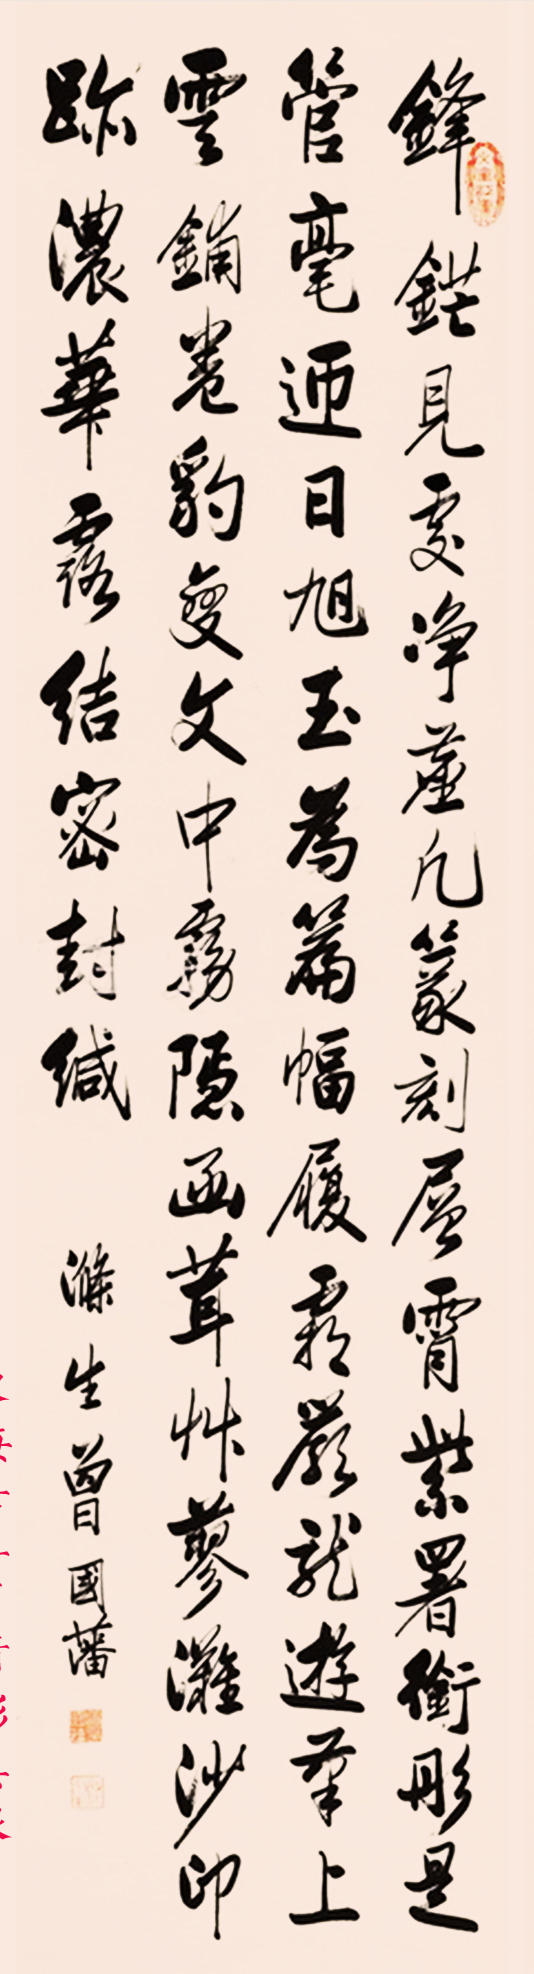 鋒鋩見處淨蘆凡篆刻層霄紫署銜彤是
管毫迊日旭玉為篇幅履霜嚴龍遊筆上
雲鋪卷豹變文中霧隱函茸艸蓼灘沙印
跡濃華露結密封緘
滌生曾國藩